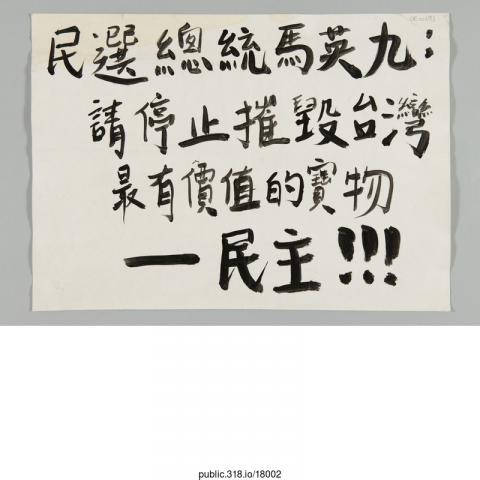 民選總統馬英九：
請停止摧毀台灣
最有價值的寶物
—民主!!!
public.318.io/18002